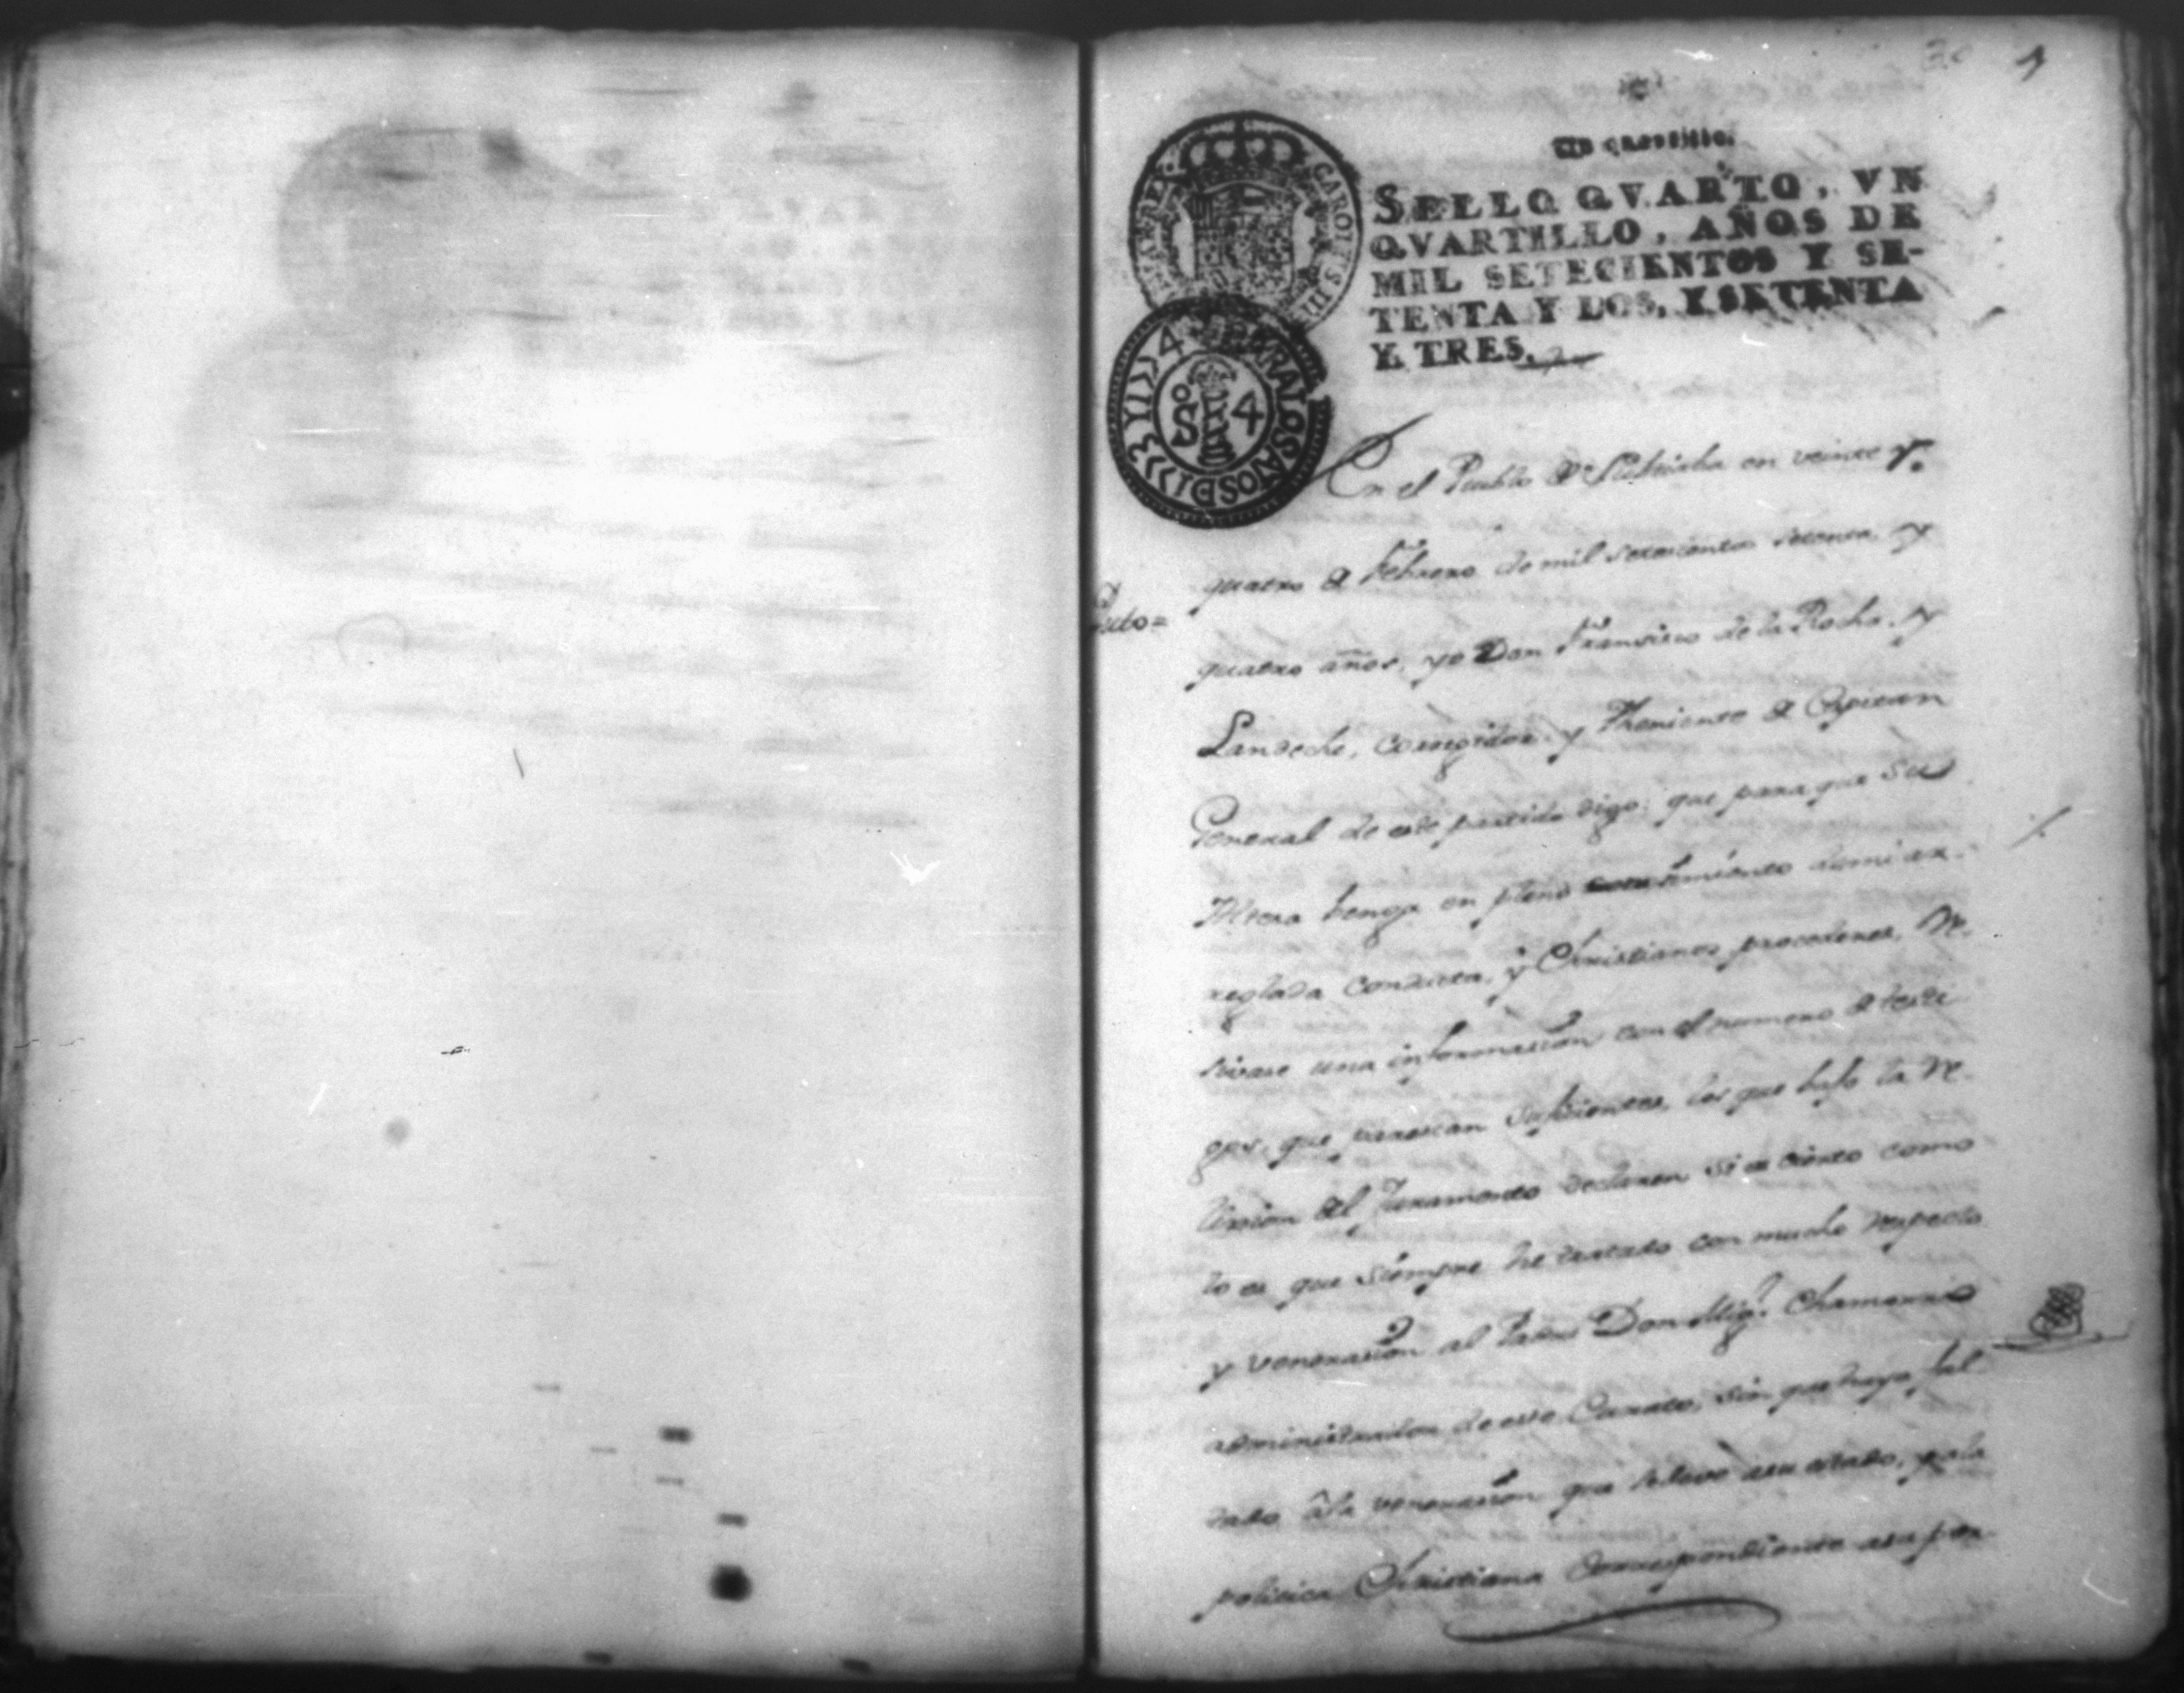 Un quartillo.
SELLO QVARTO, VN
QVARTILLO, AÑOS DE
MIL SETECIENTOS Y SE-
TENTA Y DOS, Y SETENTA
Y TRES.
CAROLUS III
S 4
En el Pueblo de en veinte y
quatro de Febrero de mil setecientos setenta, y
Auto=
quatro años, yo Don Fransisco de la Rocha, y
Landecho, corregidor y Theniente de Capitan
General de este partido digo: que para que Su
Altesa benga en pleno de mi ar-
reglada conducta, y Christianos procederes, Re-
sivase una informasion con el numero de testi-
gos, que parescan sufisientes, los que bajo la Re-
lixion del Juramento declaren si es cierto como
lo es que siempre he tratado con mucho respecto
y venerasion al Padre Don Migl. Chamorro
administrador de este Curato, sin que haya fal-
tado â la venerasion que se deve a su estado, y a la
politica Christiana correspondiente a su per-